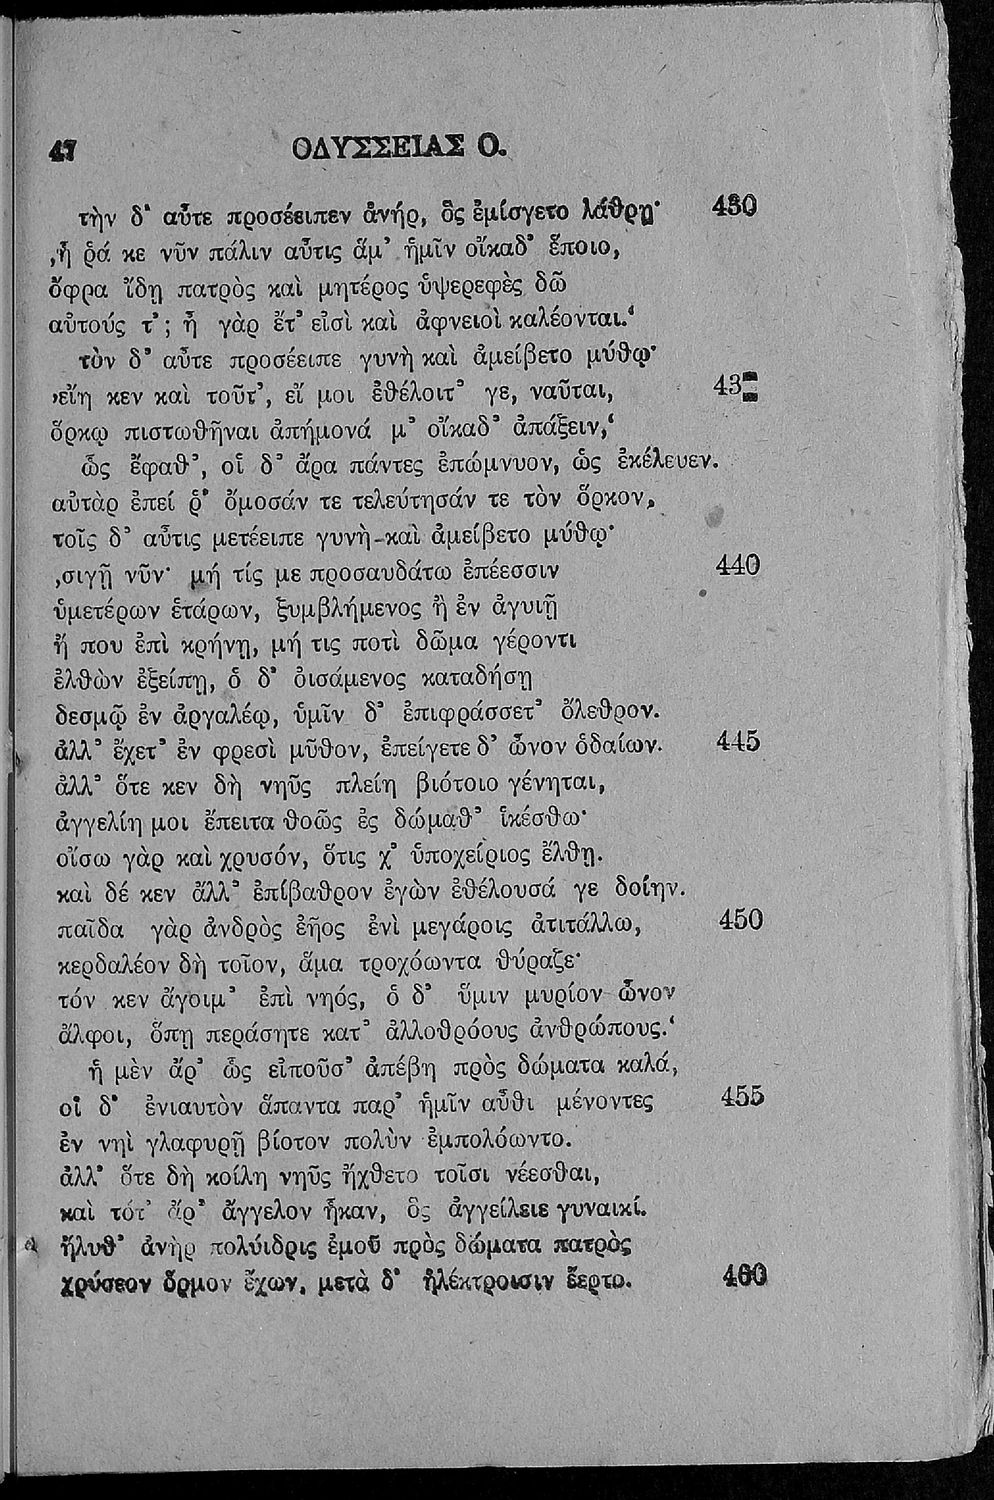 47 ΟΔΥΣΣΕΙΑΣ Ο.
τὴν δ᾽ αὖτε προσέειπεν ἀνήρ, ὃς ἐμίσγετο λάθρῃ· 430
‚ἦ ῥά κε νῦν πάλιν αὖτις ἅμ᾽ ἡμῖν οἴκαδ᾽ ἕποιο,
ὄφρα ἴδῃ πατρὸς καὶ μητέρος ὑψερεφὲς δῶ
αὐτούς τ᾽; ἦ γὰρ ἔτ᾽ εἰσὶ καὶ ἀφνειοὶ καλέονται.‘
τὸν δ᾽ αὖτε προσέειπε γυνὴ καὶ ἀμείβετο μύθῳ·
‚εἴη κεν καὶ τοῦτ᾽, εἴ μοι ἐθέλοιτ᾽ γε, ναῦται, 43
ὅρκῳ πιστωθῆναι ἀπήμονά μ᾽ οἴκαδ᾽ ἀπάξειν,‘
ὣς ἔφαθ᾽, οἱ δ᾽ ἄρα πάντες ἐπώμνυον, ὡς ἐκέλευεν.
αὐτὰρ ἐπεί ῥ᾽ ὄμοσάν τε τελεύτησάν τε τὸν ὅρκον,
τοῖς δ᾽ αὖτις μετέειπε γυνὴ καὶ ἀμείβετο μύθῳ·
‚σιγῇ νῦν· μή τίς με προσαυδάτω ἐπέεσσιν 440
ὑμετέρων ἑτάρων, ξυμβλήμενος ἢ ἐν ἀγυιῇ
ἤ που ἐπὶ κρήνῃ, μή τις ποτὶ δῶμα γέροντι
ἐλθὼν ἐξείπῃ, ὁ δ᾽ ὀισάμενος καταδήσῃ
δεσμῷ ἐν ἀργαλέῳ, ὑμῖν δ᾽ ἐπιφράσσετ᾽ ὄλεθρον.
ἀλλ᾽ ἔχετ᾽ ἐν φρεσὶ μῦθον, ἐπείγετε δ᾽ ὦνον ὁδαίων. 445
ἀλλ᾽ ὅτε κεν δὴ νηῦς πλείη βιότοιο γένηται,
ἀγγελίη μοι ἔπειτα θοῶς ἐς δώμαθ᾽ ἱκέσθω·
οἴσω γὰρ καὶ χρυσόν, ὅτις χ᾽ ὑποχείριος ἔλθῃ.
καὶ δέ κεν ἄλλ᾽ ἐπίβαθρον ἐγὼν ἐθέλουσά γε δοίην.
παῖδα γὰρ ἀνδρὸς ἑῆος ἐνὶ μεγάροις ἀτιτάλλω, 450
κερδαλέον δὴ τοῖον, ἅμα τροχόωντα θύραζε·
τόν κεν ἄγοιμ᾽ ἐπὶ νηός, ὁ δ᾽ ὕμιν μυρίον ὦνον
ἄλφοι, ὅπῃ περάσητε κατ᾽ ἀλλοθρόους ἀνθρώπους.‘
ἡ μὲν ἄρ᾽ ὣς εἰποῦσ᾽ ἀπέβη πρὸς δώματα καλά,
οἱ δ᾽ ἐνιαυτὸν ἅπαντα παρ᾽ ἡμῖν αὖθι μένοντες 455
ἐν νηὶ γλαφυρῇ βίοτον πολὺν ἐμπολόωντο.
ἀλλ᾽ ὅτε δὴ κοίλη νηῦς ἤχθετο τοῖσι νέεσθαι,
καὶ τότ᾽ ἄρ᾽ ἄγγελον ἧκαν, ὃς ἀγγείλειε γυναικί.
ἤλυθ᾽ ἀνὴρ πολύιδρις ἐμοῦ πρὸς δώματα πατρὸς
χρύσεον ὅρμον ἔχων, μετὰ δ᾽ ἠλέκτροισιν ἔερτο. 460